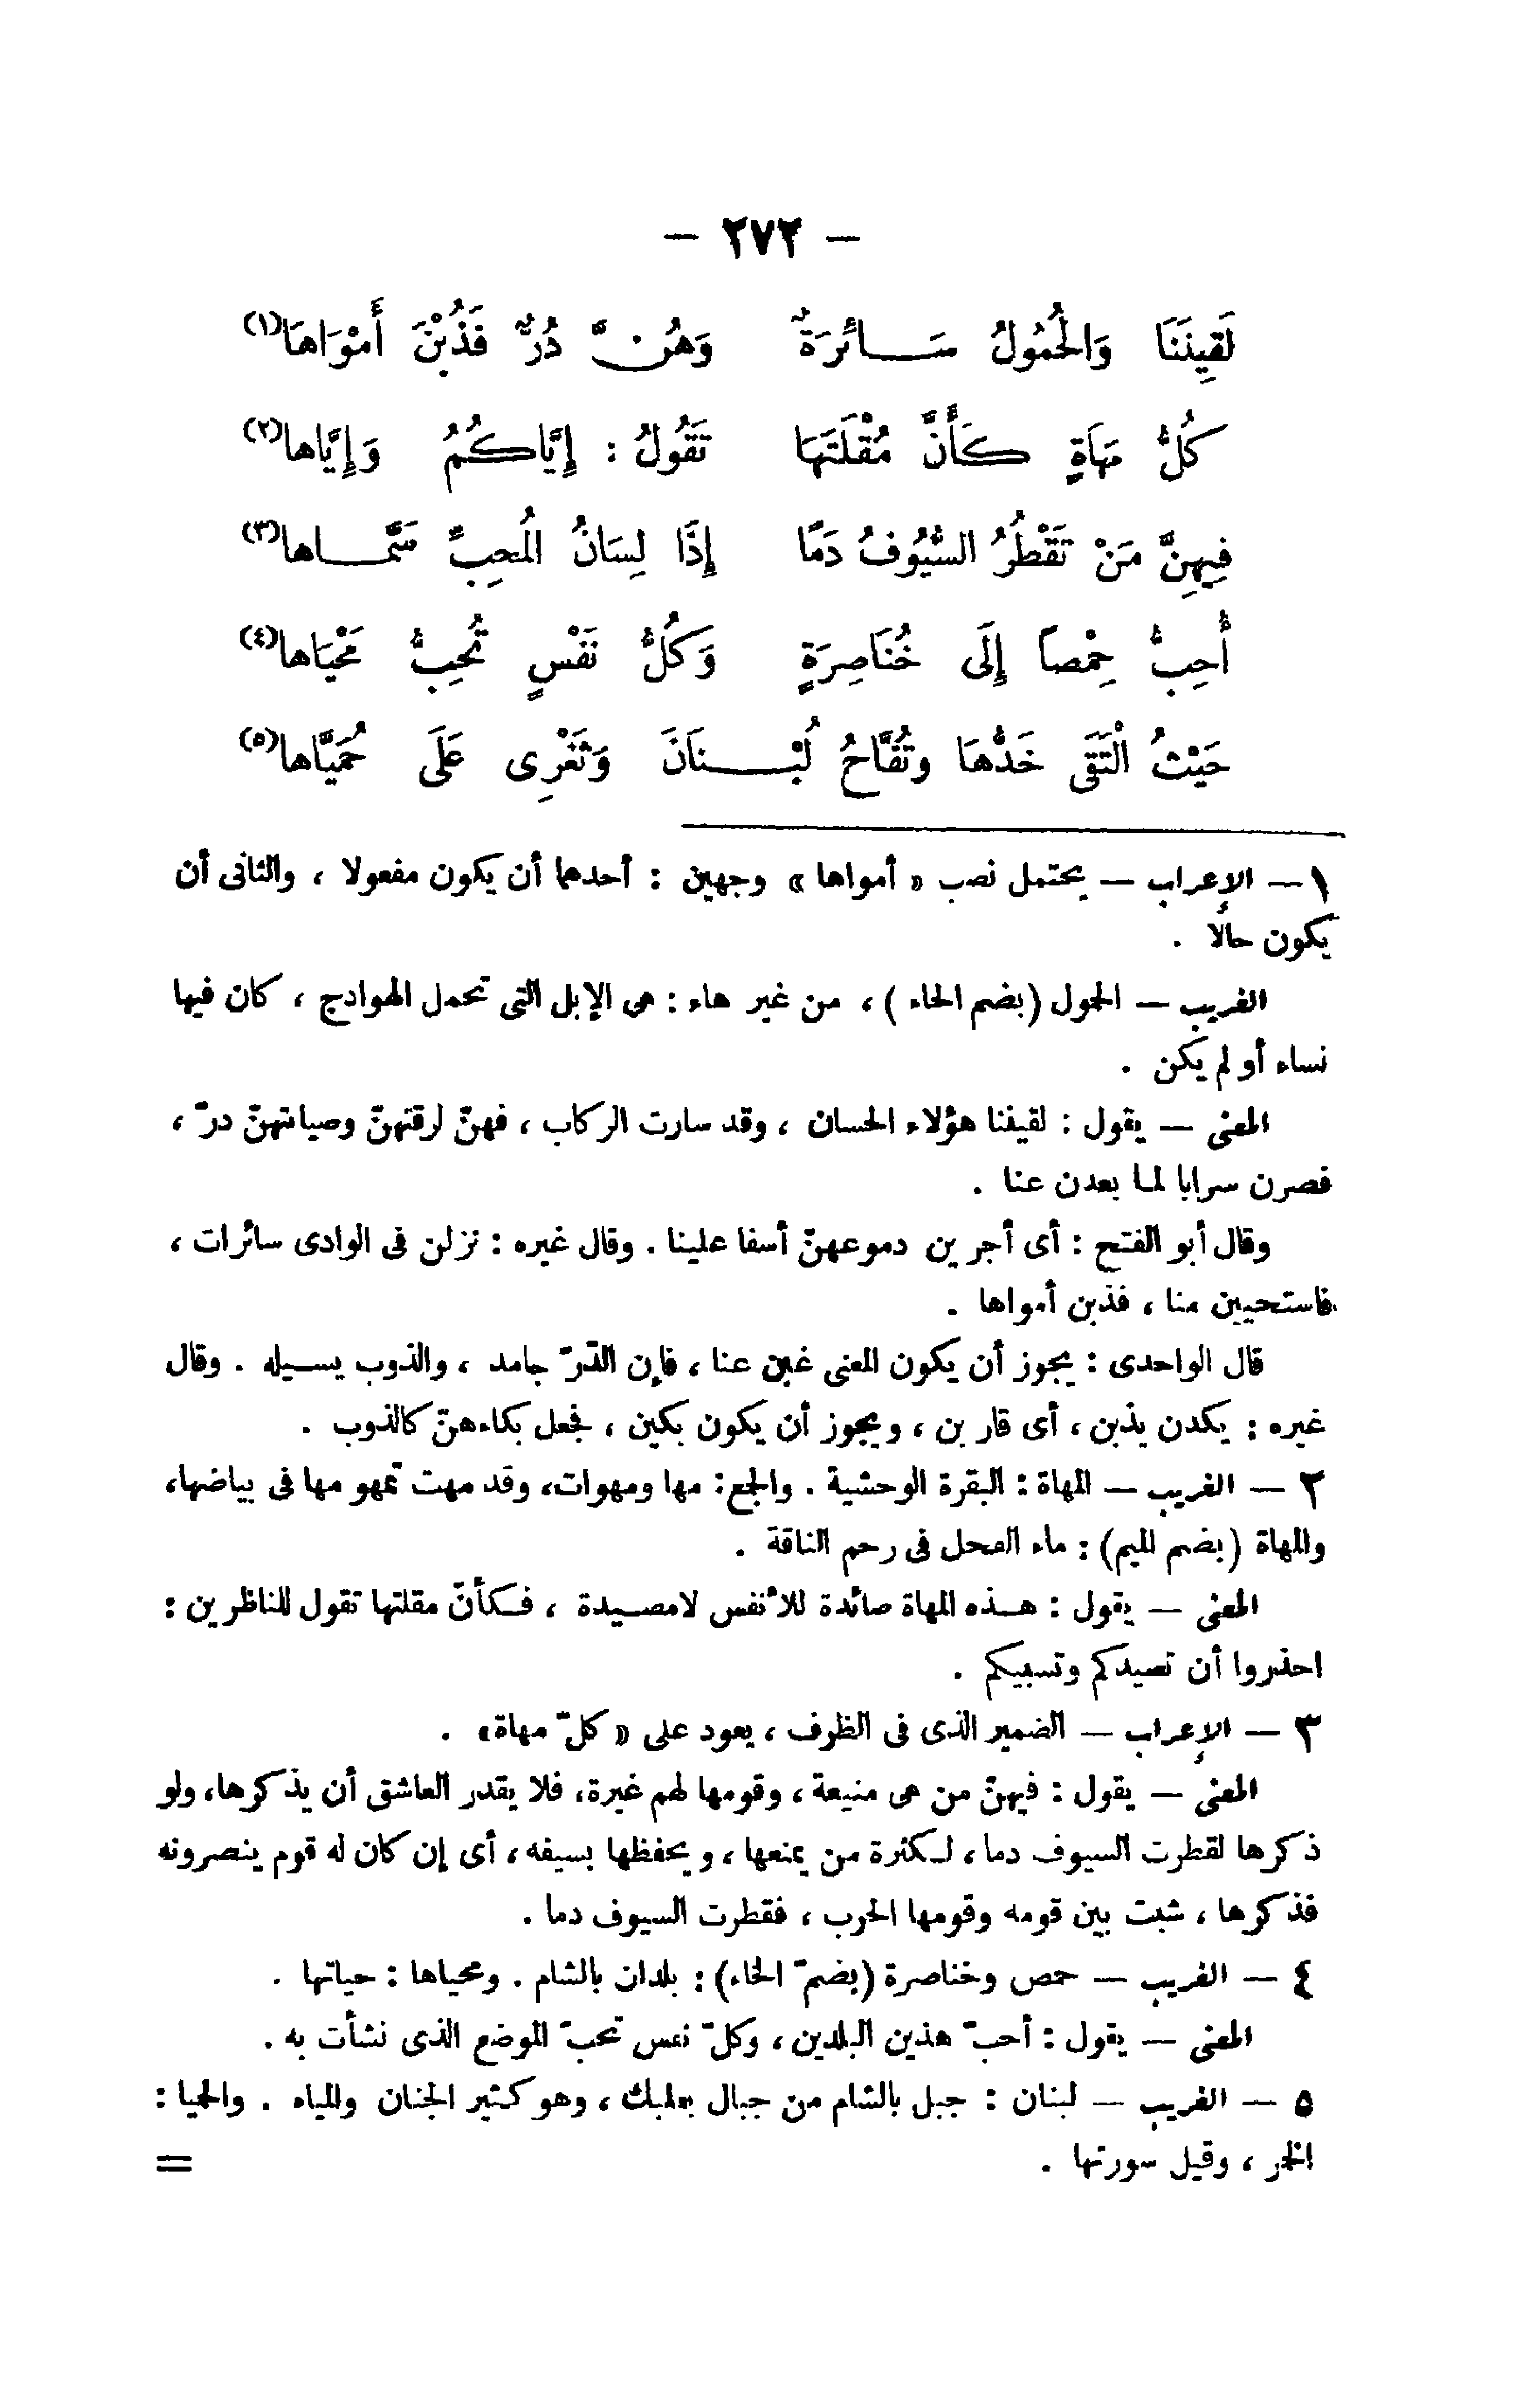 — ٢٧٢ —
لَقِينَنَا وَالْحُمُولُ سَـائِرَةٌ وَهُنَّ دُرٌّ فَذُبْنَ أَمْوَاهَا(١)
كُلُّ مَهَاةٍ كَأَنَّ مُقْلَتَهَا تَقُولُ : إِيَّاكُمُ وَإِيَّاها(٢)
فِيهِنَّ مَنْ تَقْطُرُ السُّيُوفُ دَمًا إِذَا لِسَانُ الْمُحِبِّ سَمَّـاها(٣)
أُحِبُّ حِمْصاً إِلَى خُنَاصِرَةٍ وَكُلُّ نَفْسٍ تُحِبُّ مَحْيَاها(٤)
حَيْثُ الْتَقَى خَدُّهَا وتُفَّاحُ لُبْـنَانَ وَثَغْرِى عَلَى حُمَيَّاها(٥)
١ — الإعراب — يحتمل نصب « أمواها » وجهين : أحدهما أن يكون مفعولا ، والثانى أن
يكون حالًا .
الغريب — الحمول (بضم الحاء ) ، من غير هاء : هى الإبل التى تحمل الهوادج ، كان فيها
نساء أو لم يكن .
المعنى — يقول : لقيننا هؤلاء الحسان ، وقد سارت الركاب ، فهنّ لرقتهنّ وصيانتهنّ درّ ،
فصرن سرابا لما بعدن عنا .
وقال أبو الفتح : أى أجرين دموعهنّ أسفا علينا . وقال غيره : نزلن فى الوادى سائرات ،
فاستحيين منا ، فذبن أمواها .
قال الواحدى : يجوز أن يكون المعنى غبن عنا ، فإن الدّرّ جامد ، والذوب يسـيله . وقال
غيره : يكدن يذبن ، أى قاربن ، ويجوز أن يكون بكين ، فجعل بكاءهنّ كالذوب .
٢ — الغريب — المهاة : البقرة الوحشية . والجمع : مها ومهوات، وقد مهت تمهو مها فى بياضها،
والمهاة (بضم الميم) : ماء الفحل فى رحم الناقة .
المعنى — يقول : هـذه المهاة صائدة للأنفس لامصـيدة ، فـكأنّ مقلتها تقول للناظرين :
احذروا أن تصيدكم وتسبيكم .
٣ — الإعراب — الضمير الذى فى الظرف ، يعود على « كلّ مهاة» .
المعنى — يقول : فيهنّ من هى منيعة ، وقومها لهم غيرة، فلا يقدر العاشق أن يذكرها، ولو
ذكرها لقطرت السيوف دما، لـكثرة من يمنعها ، ويحفظها بسيفه ، أى إن كان له قوم ينصرونه
فذكرها ، شبت بين قومه وقومها الحرب ، فقطرت السيوف دما .
٤ — الغريب — حمص وخناصرة (بضمّ الخاء) : بلدان بالشام . ومحياها : حياتها .
المعنى — يقول : أحبّ هذين البلدين ، وكلّ نفس تحبّ الموضع الذى نشأت به .
٥ — الغريب — لبنان : جبل بالشام من جبال بعلبك ، وهو كثير الجنان والمياه . والحميا :
الخمر ، وقيل سورتها .
=